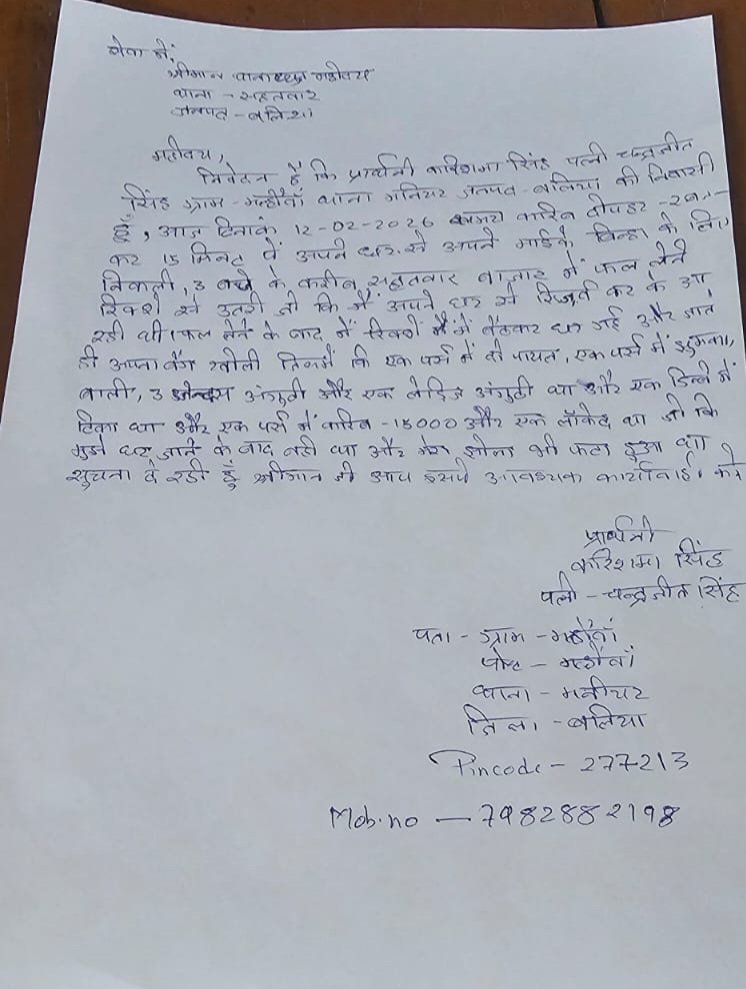 सेवा में,
श्रीमान थानाध्यक्ष महोदय
थाना - सहतवार
जनपद - बलिया
महोदय,
निवेदन है कि प्रार्थीनी करिशमा सिंह पत्नी चन्द्रजीत
सिंह ग्राम - थाना मनियर जनपद - बलिया की निवासी
हूँ, आज दिनांक 12-02-2026 समय करिब दोपहर - 2 बज-
कर 15 मिनट पे अपने घर से अपने माईके के लिए
निकली, 3 बजे के करीब सहतवार बाजार में फल लेने
रिक्शे से उतरी जो कि मैं अपने घर से रिजर्व कर के आ
रही थी। फल लेने के बाद में रिक्शे में बैठकर घर गई और जाते
ही अपना बैग खोली जिसमें कि एक पर्स में दो पायल, एक पर्स में झुमका,
बाली, 3 जेन्टस अंगुठी और एक लेडिज अंगुठी था और एक डिब्बे में
टिका था और एक पर्स में करिब - 15000 और एक लॉकेट था जो कि
मुझे घर जाने के बाद नही था और मेरा झोला भी फटा हुआ था
सुचना दे रही हुँ श्रीमान जी आप इसपे आवश्यक कार्यावाई। करे
प्रार्थीनी
करिशमा सिंह
पत्नी - चन्द्रजीत सिंह
पता - ग्राम -
पोस्ट -
थाना - मनीयर
जिला - बलिया
Pincode - 277213
Mob.no - 7982882198